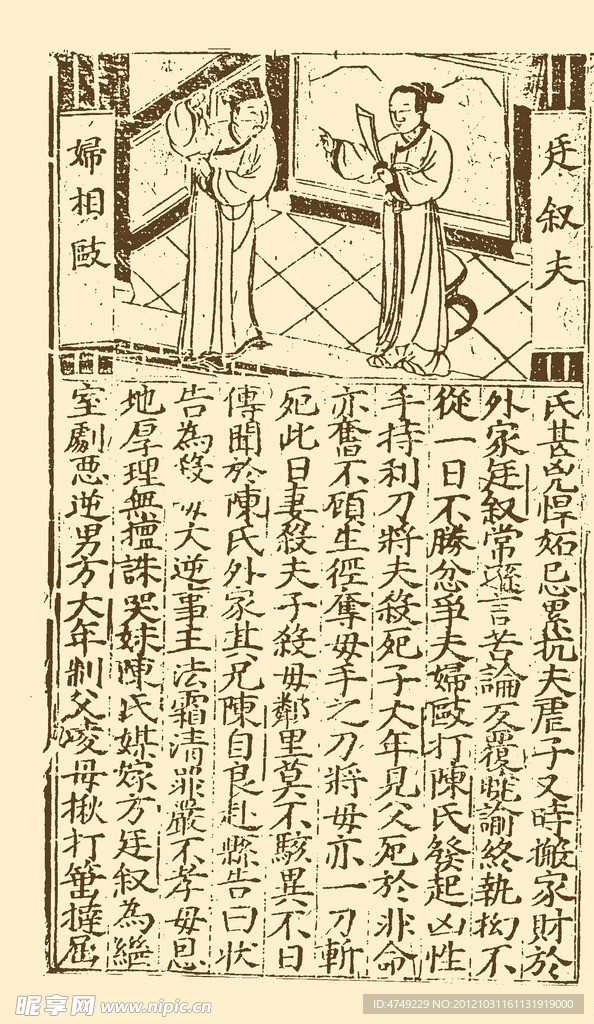 廷叙夫
婦相毆
氏甚兇悍妬忌累抗夫虐子又時搬家財於
外家廷叙常遜言苦論反覆曉諭終執拗不
從一日不勝忿爭夫婦毆打陳氏發起凶性
手持利刀將夫殺死子大年見父死於非命
亦奮不顧生徑奪母手之刀將母亦一刀斬
死此日妻殺夫子殺母鄰里莫不駭異不日
傳聞於陳氏外家其兄陳自良赴縣告曰狀
告為殺 大逆事王法霜清罪嚴不孝母恩
地厚理無擅誅哭妹陳氏媒嫁方廷叙為繼
室劇惡逆男方大年制父凌母揪打箠撻屈
昵享网 www.nipic.cn
ID:4749229 NO:20121031161131919000